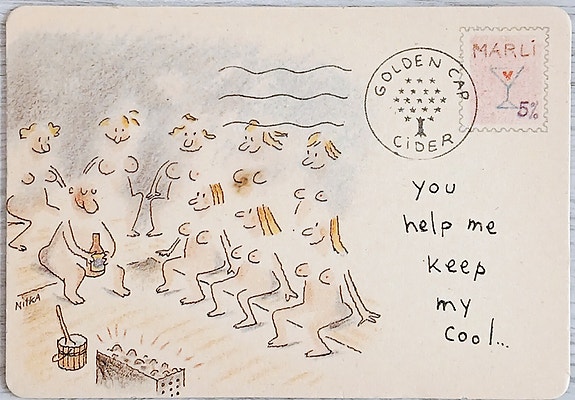 GOLDEN CAP
CIDER
MARLi
5%
you
help me
keep
my
cool...
NITKA